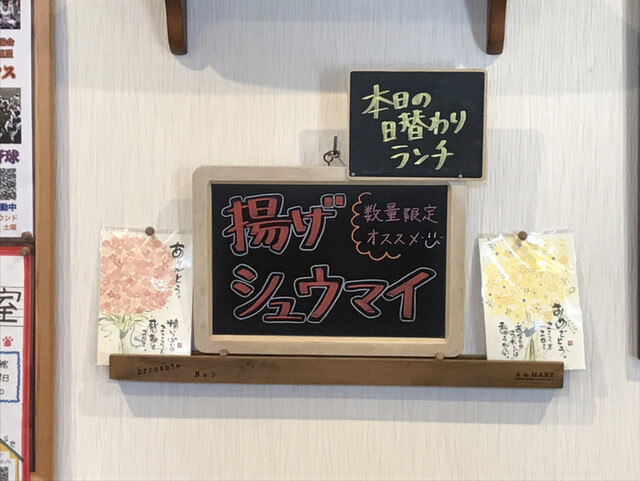 本日の
日替わり
ランチ
揚げ
数量限定
オススメ
シュウマイ
ありがとう。
ありがとう。
brocante
A a MART
野球
動中
ウンド
土曜
室